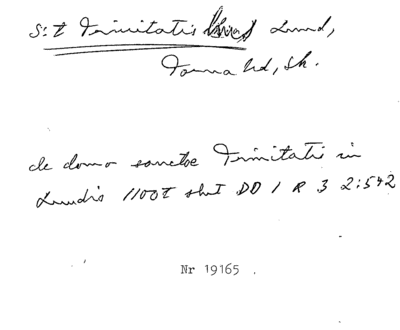 S:t Trinitatis Lund,
Torna hd, Sk.
de domo sanctae Trinitatis in
Lundis 1100t slut DD 1 R 3 2:542
Nr 19165 .